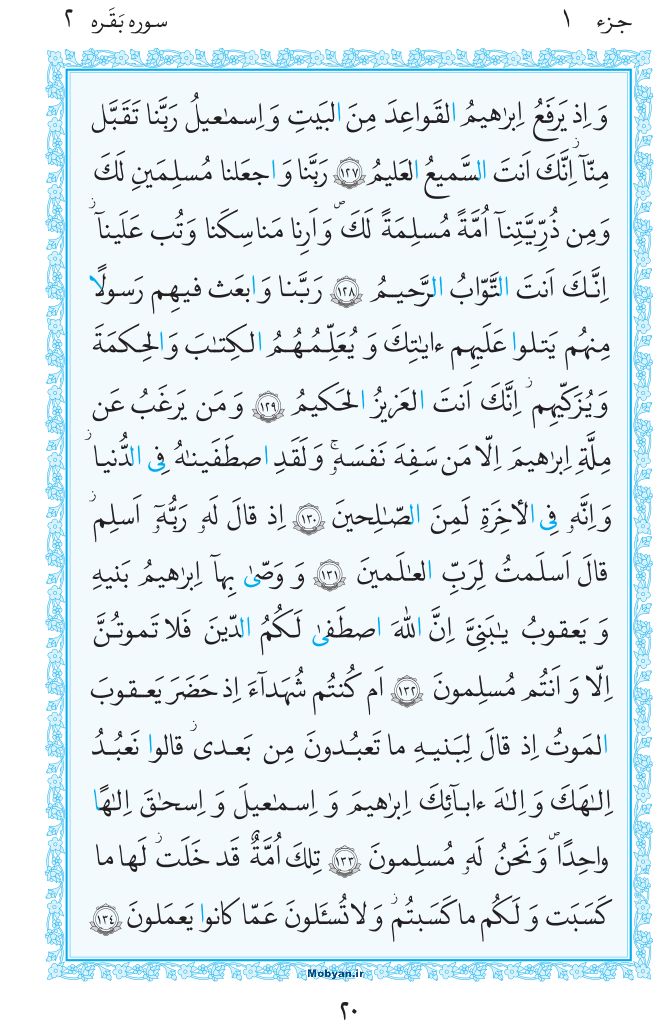 جزء ١
سوره بَقَره ٢
وَ اِذ يَرفَعُ اِبراهيمُ القَواعِدَ مِنَ البَيتِ وَ اِسماعيلُ رَبَّنا تَقَبَّل
مِنّآ اِنَّكَ اَنتَ السَّميعُ العَليمُ ١٢٧ رَبَّنا وَ اجعَلنا مُسلِمَينِ لَكَ
وَ مِن ذُرِّيَّتِنآ اُمَّةً مُسلِمَةً لَكَ وَ اَرِنا مَناسِكَنا وَ تُب عَلَينآ
اِنَّكَ اَنتَ التَّوّابُ الرَّحيمُ ١٢٨ رَبَّنا وَ ابعَث فيهِم رَسولًا
مِنهُم يَتلوا عَلَيهِم ءايٰتِكَ وَ يُعَلِّمُهُمُ الكِتٰبَ وَ الحِكمَةَ
وَ يُزَكّيهِم اِنَّكَ اَنتَ العَزيزُ الحَكيمُ ١٢٩ وَ مَن يَرغَبُ عَن
مِلَّةِ اِبرٰهيمَ اِلّا مَن سَفِهَ نَفسَهۥ وَ لَقَدِ اصطَفَينٰهُ فِى الدُّنيا
وَ اِنَّهۥ فِى الأخِرَةِ لَمِنَ الصّٰلِحينَ ١٣٠ اِذ قالَ لَهۥ رَبُّهۥٓ اَسلِم
قالَ اَسلَمتُ لِرَبِّ العٰلَمينَ ١٣١ وَ وَصّىٰ بِهآ اِبرٰهيمُ بَنيهِ
وَ يَعقوبُ يٰبَنِىَّ اِنَّ اللّٰهَ اصطَفىٰ لَكُمُ الدّينَ فَلا تَموتُنَّ
اِلّا وَ اَنتُم مُسلِمونَ ١٣٢ اَم كُنتُم شُهَدآءَ اِذ حَضَرَ يَعقوبَ
المَوتُ اِذ قالَ لِبَنيهِ ما تَعبُدونَ مِن بَعدى قالوا نَعبُدُ
اِلٰهَكَ وَ اِلٰهَ ءابآئِكَ اِبرٰهيمَ وَ اِسمٰعيلَ وَ اِسحٰقَ اِلٰهًا
واحِدًا وَ نَحنُ لَهۥ مُسلِمونَ ١٣٣ تِلكَ اُمَّةٌ قَد خَلَت لَها ما
كَسَبَت وَ لَكُم ما كَسَبتُم وَ لا تُسئَلونَ عَمّا كانوا يَعمَلونَ ١٣٤
Mobyan.ir
٢٠